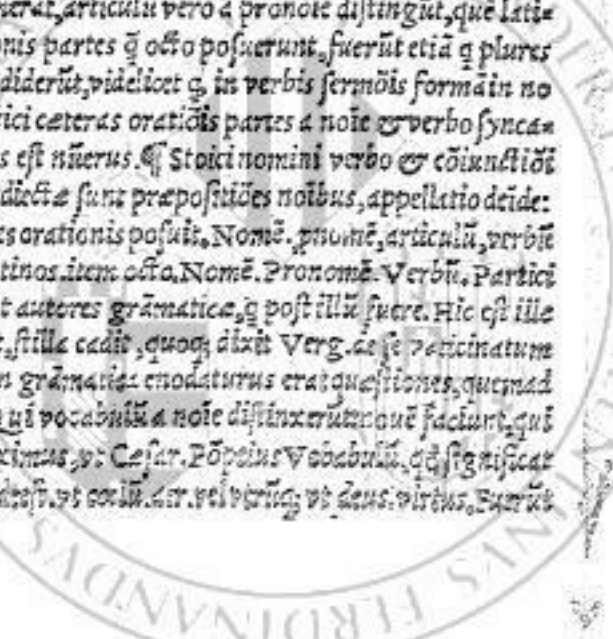 nerat, articulū vero a pronoīe distingūt, quē lati=
onis partes q̄ octo posuerunt, fuerūt etiā q plures
diderūt, videlicet q, in verbis sermōis formā in no
ici cæteras oratiōis partes a noīe & verbo synca=
s est nūerus. ¶ Stoici nomini verbo & cōiunctiōi
diectæ sunt præpositiōes noībus, appellatio deīde:
s orationis posuit. Nomē. pnomē, articulū, verbū
tinos. item octo. Nomē. Pronomē. Verbū. Partici
t autores grāmaticæ, q̄ post illū fuere. Hic est ille
, stilla cadit, quoq; dixit Verg. de se vaticinatum
n grāmatica enodaturus erat quæstiones, quemad
ui vocabulū a noīe distinxerūt nouē faciunt, qui
ximus, vt Cæsar. Pōpeius Vobabulū, qd̄ significat
vt cœlū. aer. vel vtrūq; vt deus. virtus. Fuerūt
FERDINANDVS